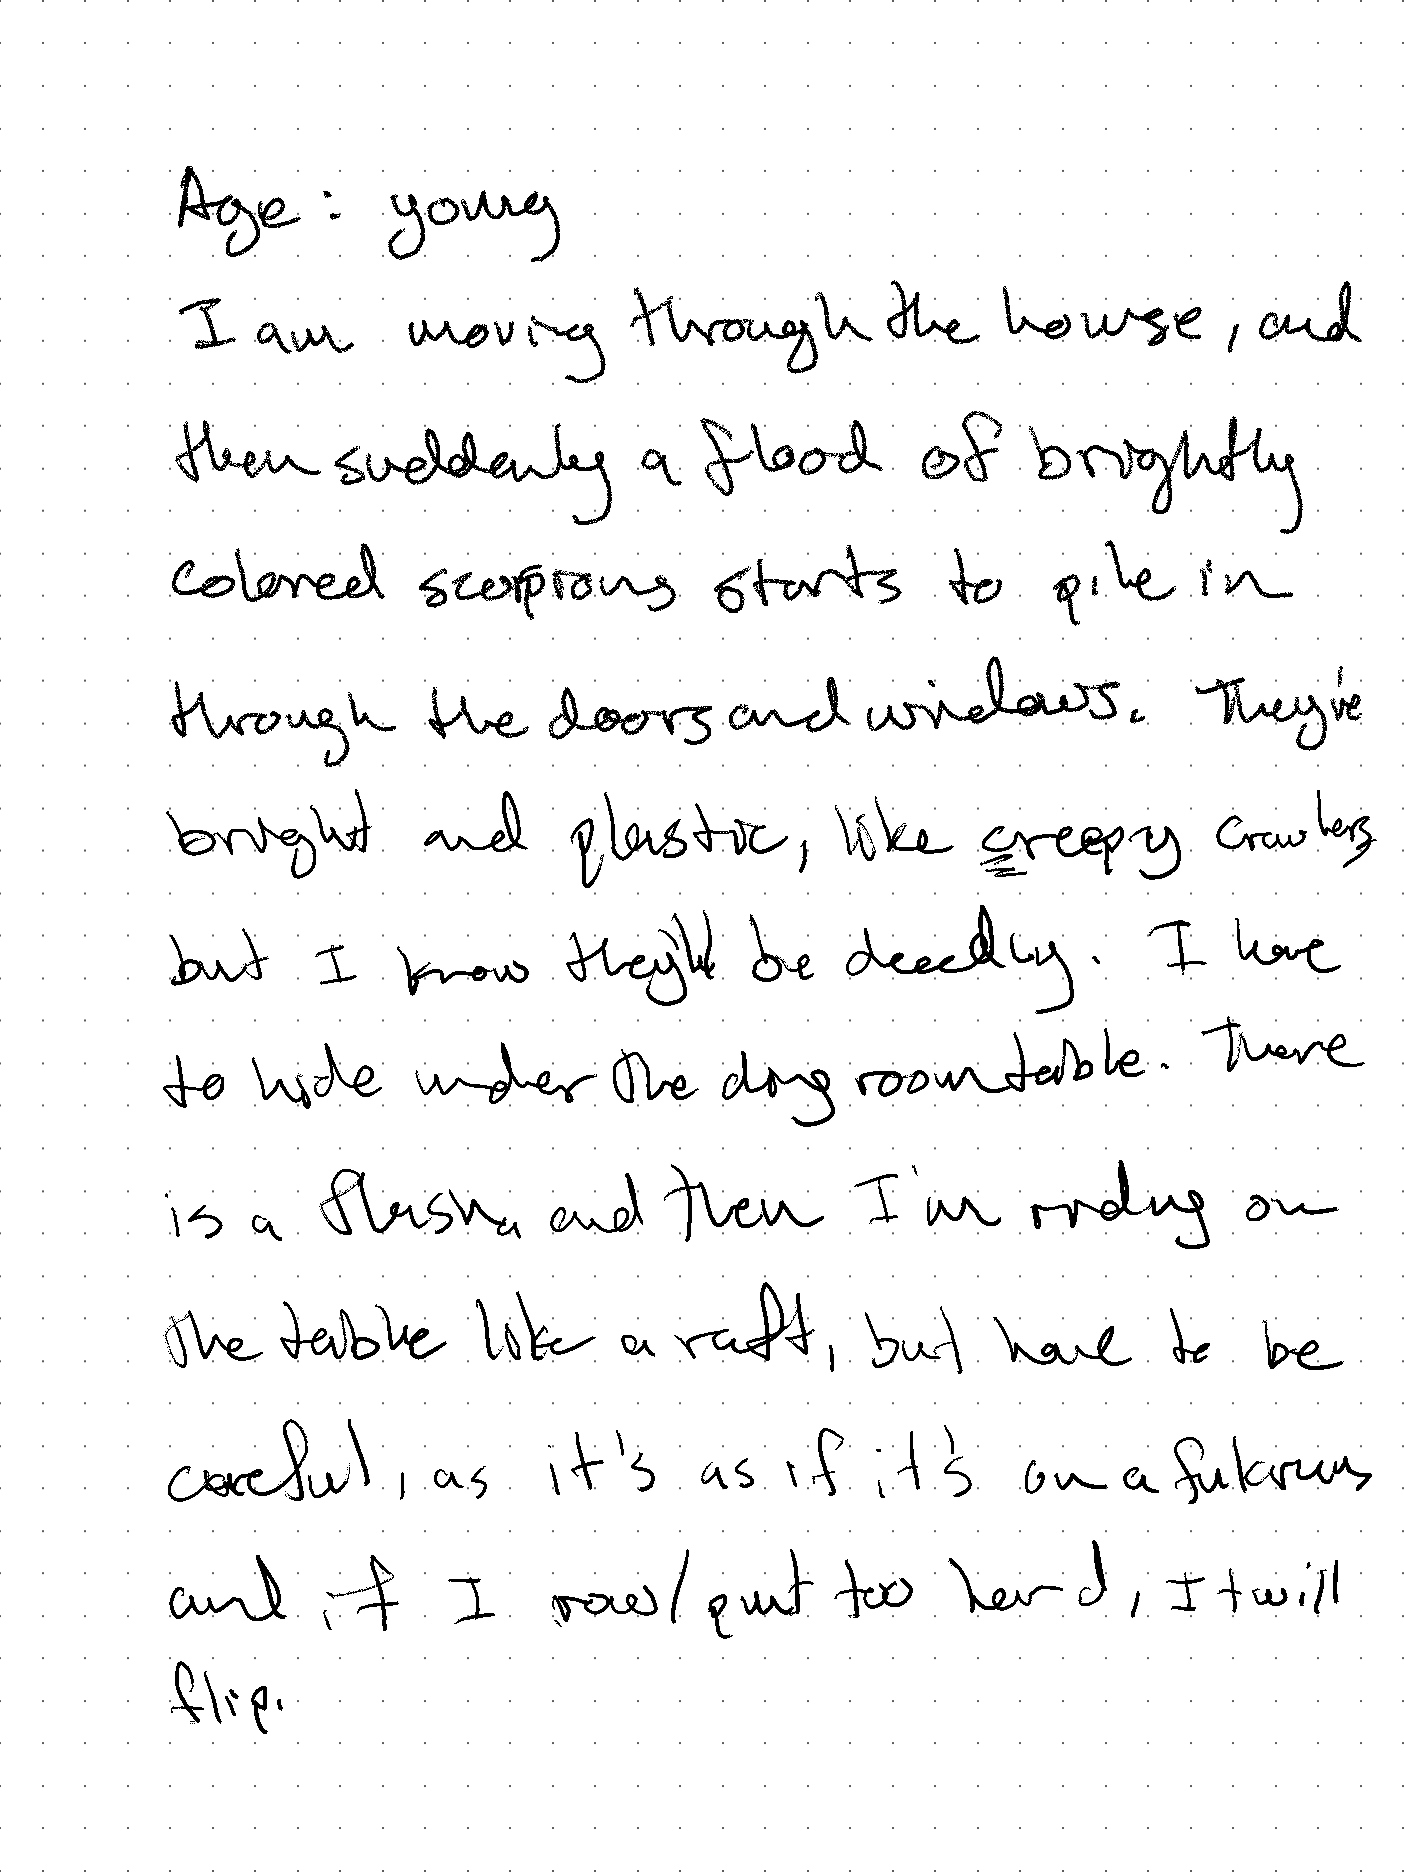 Age: young
I am moving through the house, and
then suddenly a flood of brightly
colored scorpions starts to pile in
through the doors and windows. They're
bright and plastic, like creepy crawlers
but I know they'll be deadly. I have
to hide under the ding room table. There
is a flash, and then I'm riding on
the table like a raft, but have to be
careful, as it's as if it's on a fulcrum
and if I row/punt too hard, It will
flip.